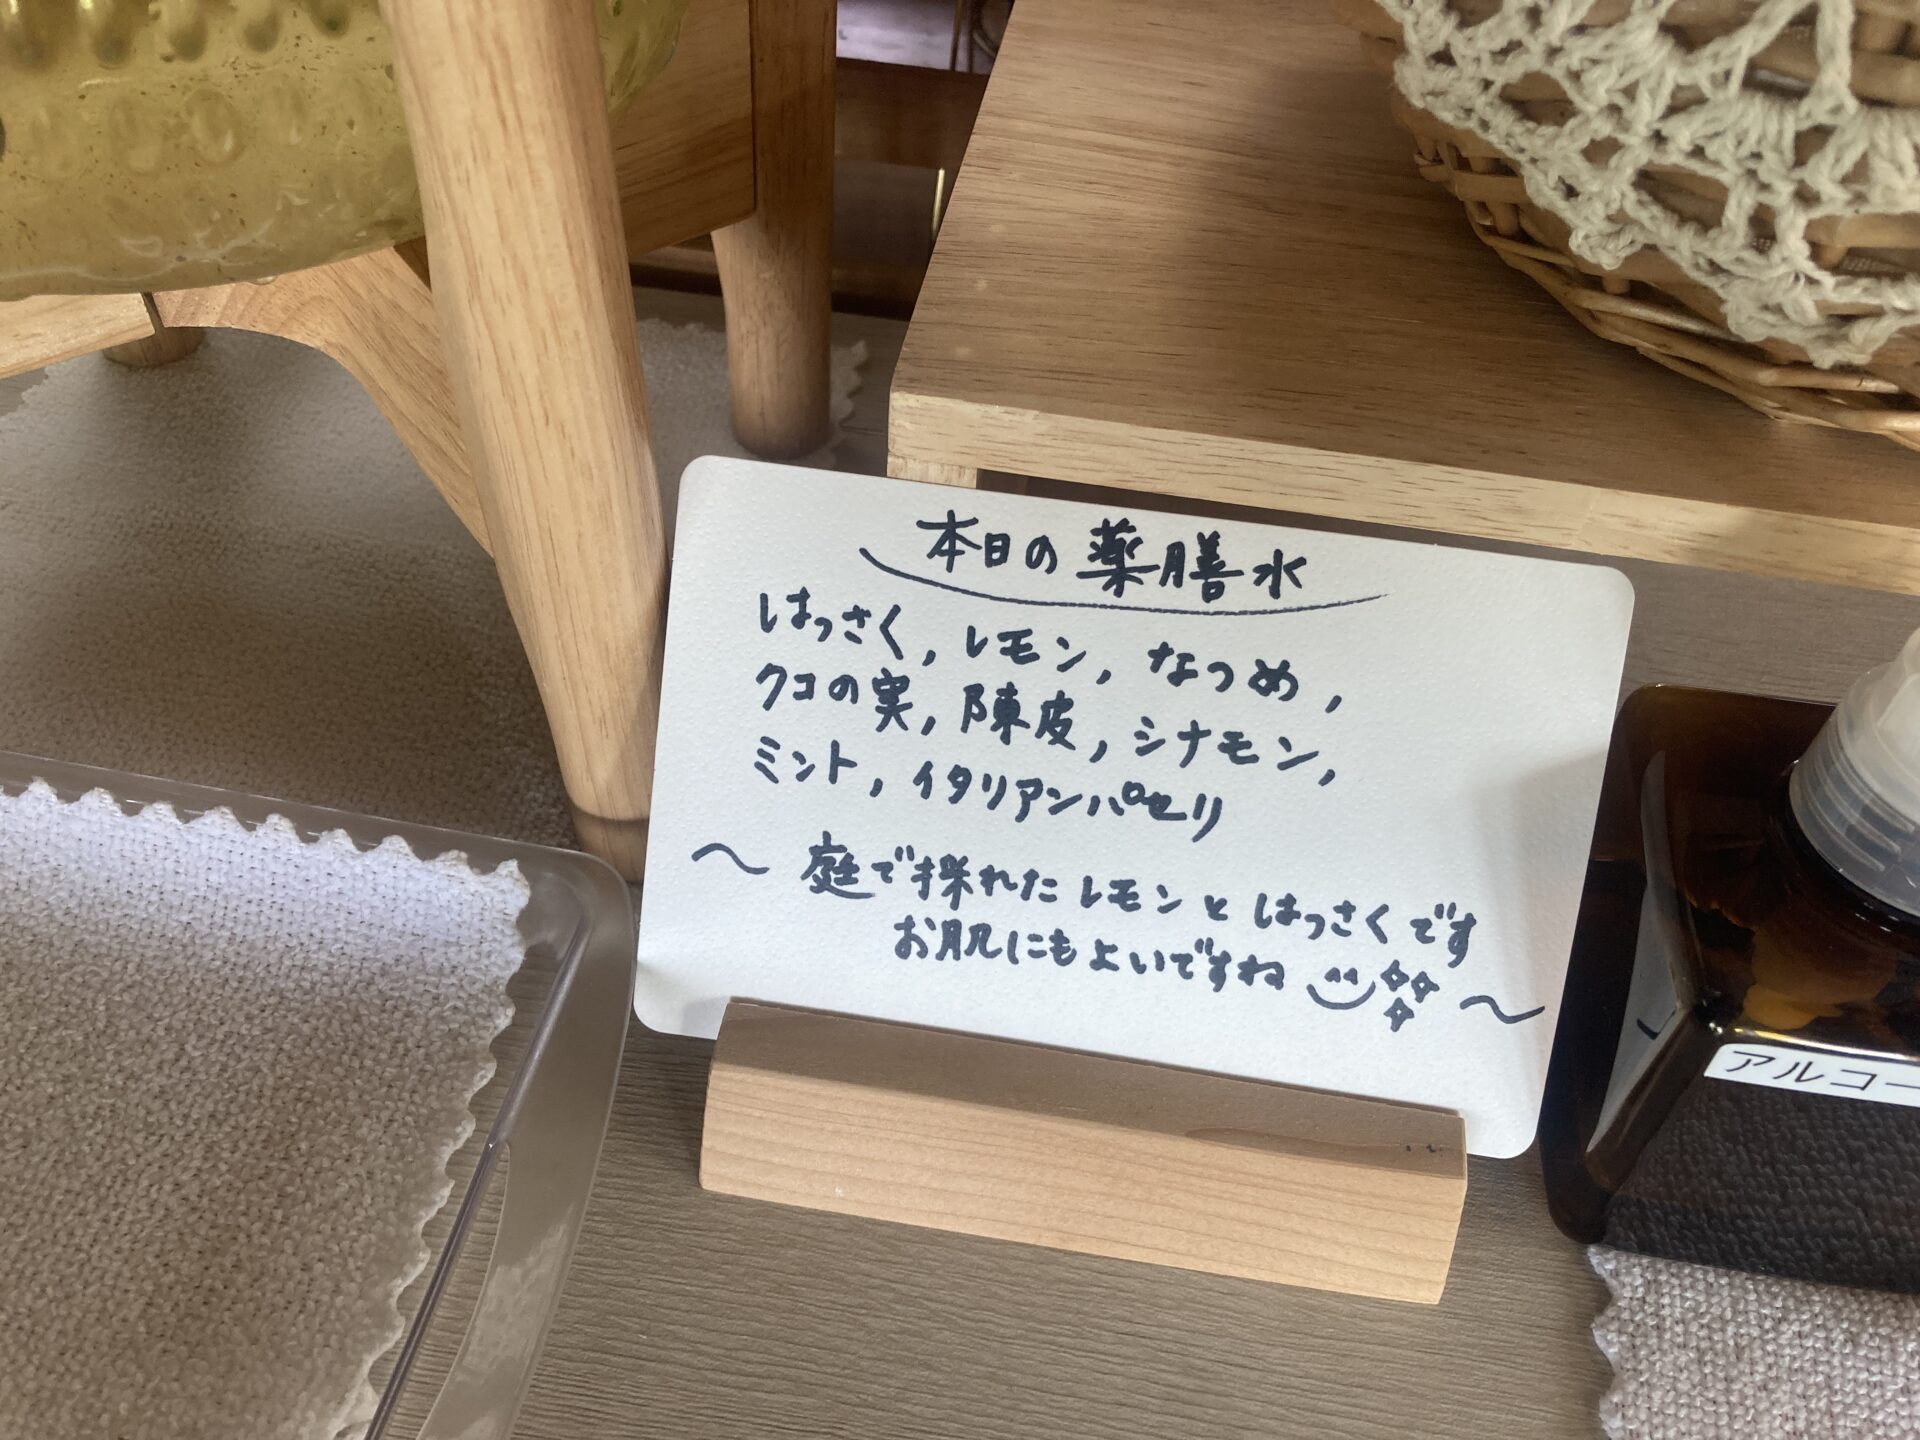 本日の薬膳水
はっさく, レモン, なつめ,
クコの実, 陳皮, シナモン,
ミント, イタリアンパセリ
～ 庭で採れたレモンとはっさくです
お肌にもよいですね ～
アルコー